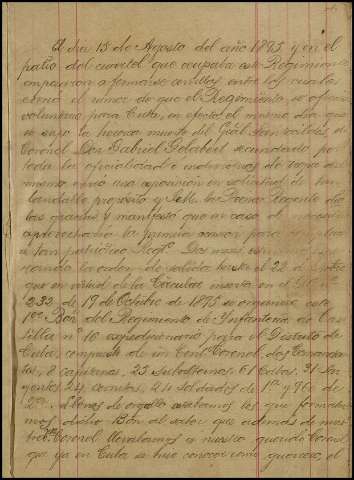 El dia 15 de Agosto del año 1895 y en el
patio del cuartel que ocupaba este Regimiento
empezaron a formarse corrillos entre los cuales
el rumor de que el Regimiento se ofrecia
voluntario para Cuba, en efecto el mismo dia que
se supo la heroica muerte del Gral. Santocildes el
Coronel Don Gabriel Gelabert secundado por
toda la oficialidad e individuos de tropa del
mismo envió una exposicion en solicitud de tan
laudable propósito y S.M. la Reina Regente dio
las gracias y manifestó que en caso de necesidad
aprovecharia la primera ocasion para
a tan patriótico Regto. Dos meses
la orden de salida hasta el 22 de Octubre
que en virtud de la Circular inserta en el
232 de 19 de Octubre de 1895 se organizó este
1er. Bon. del Regimiento de Infanteria de Cas
tilla nº 16 expedicionario para el Distrito de
Cuba, compuesto de un Tente. Coronel, dos Comandan
tes, 8 capitanes, 25 Subalternos 61 Cabos, 31 Sar
gentos 24 cornetas, 24 soldados de 1ª y 760 de
2ª. Llenos de orgullo estabamos los que formaba
mos dicho Bon. al saber que además de nues
tro Tte. Coronel llevabamos a nuestro querido Coronel
que ya en Cuba se hizo conocer como guerrero, el